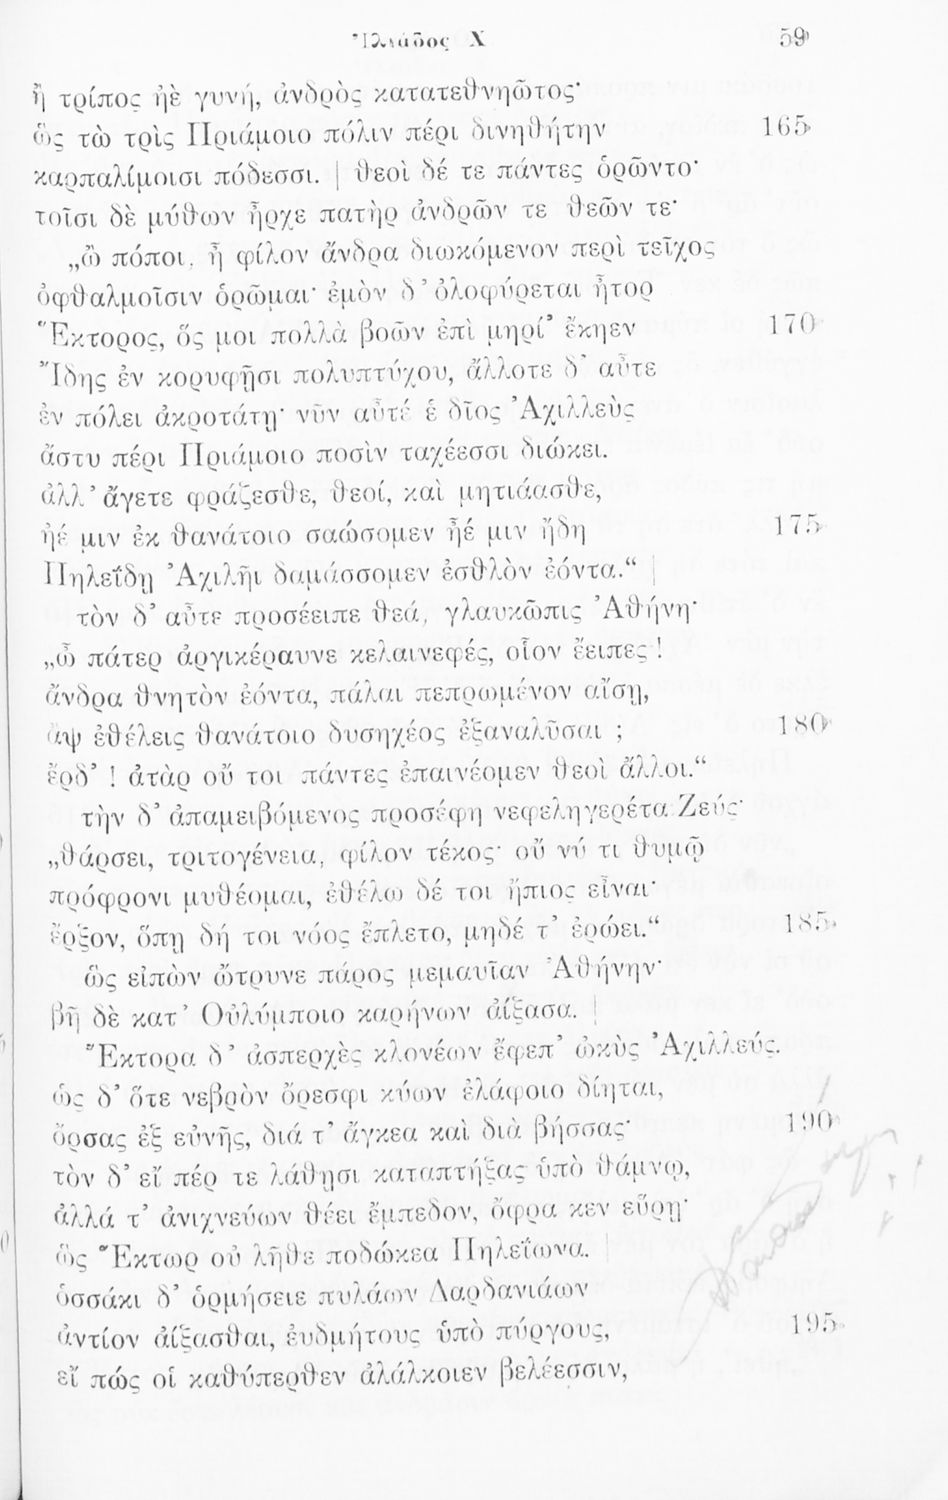 Ἰλιάδος Χ 59
ἢ τρίπος ἠὲ γυνή, ἀνδρὸς κατατεθνηῶτος·
ὣς τὼ τρὶς Πριάμοιο πόλιν πέρι δινηθήτην 165
καρπαλίμοισι πόδεσσι. | θεοὶ δέ τε πάντες ὁρῶντο·
τοῖσι δὲ μύθων ἦρχε πατὴρ ἀνδρῶν τε θεῶν τε·
„ὢ πόποι, ἦ φίλον ἄνδρα διωκόμενον περὶ τεῖχος
ὀφθαλμοῖσιν ὁρῶμαι· ἐμὸν δ’ ὀλοφύρεται ἦτορ
Ἕκτορος, ὅς μοι πολλὰ βοῶν ἐπὶ μηρί’ ἔκηεν 170
Ἴδης ἐν κορυφῇσι πολυπτύχου, ἄλλοτε δ’ αὖτε
ἐν πόλει ἀκροτάτῃ· νῦν αὖτέ ἑ δῖος Ἀχιλλεὺς
ἄστυ πέρι Πριάμοιο ποσὶν ταχέεσσι διώκει.
ἀλλ’ ἄγετε φράζεσθε, θεοί, καὶ μητιάασθε,
ἠέ μιν ἐκ θανάτοιο σαώσομεν ἦέ μιν ἤδη 175
Πηλεΐδῃ Ἀχιλῆι δαμάσσομεν ἐσθλὸν ἐόντα.“ |
τὸν δ’ αὖτε προσέειπε θεά, γλαυκῶπις Ἀθήνη·
„ὦ πάτερ ἀργικέραυνε κελαινεφές, οἷον ἔειπες!
ἄνδρα θνητὸν ἐόντα, πάλαι πεπρωμένον αἴσῃ,
ἂψ ἐθέλεις θανάτοιο δυσηχέος ἐξαναλῦσαι ; 180
ἔρδ’ ! ἀτὰρ οὔ τοι πάντες ἐπαινέομεν θεοὶ ἄλλοι.“
τὴν δ’ ἀπαμειβόμενος προσέφη νεφεληγερέτα Ζεύς·
„θάρσει, τριτογένεια, φίλον τέκος· οὔ νύ τι θυμῷ
πρόφρονι μυθέομαι, ἐθέλω δέ τοι ἤπιος εἶναι·
ἔρξον, ὅπῃ δή τοι νόος ἔπλετο, μηδέ τ’ ἐρώει.“ 185
ὣς εἰπὼν ὤτρυνε πάρος μεμαυῖαν Ἀθήνην·
βῆ δὲ κατ’ Οὐλύμποιο καρήνων ἀίξασα. |
Ἕκτορα δ’ ἀσπερχὲς κλονέων ἔφεπ’ ὠκὺς Ἀχιλλεύς.
ὡς δ’ ὅτε νεβρὸν ὄρεσφι κύων ἐλάφοιο δίηται,
ὄρσας ἐξ εὐνῆς, διά τ’ ἄγκεα καὶ διὰ βήσσας· 190
τὸν δ’ εἴ πέρ τε λάθῃσι καταπτήξας ὑπὸ θάμνῳ,
ἀλλά τ’ ἀνιχνεύων θέει ἔμπεδον, ὄφρα κεν εὕρῃ·
ὣς Ἕκτωρ οὐ λῆθε ποδώκεα Πηλεΐωνα. |
ὁσσάκι δ’ ὁρμήσειε πυλάων Δαρδανιάων
ἀντίον ἀίξασθαι, ἐυδμήτους ὑπὸ πύργους, 195
εἴ πώς οἱ καθύπερθεν ἀλάλκοιεν βελέεσσιν,